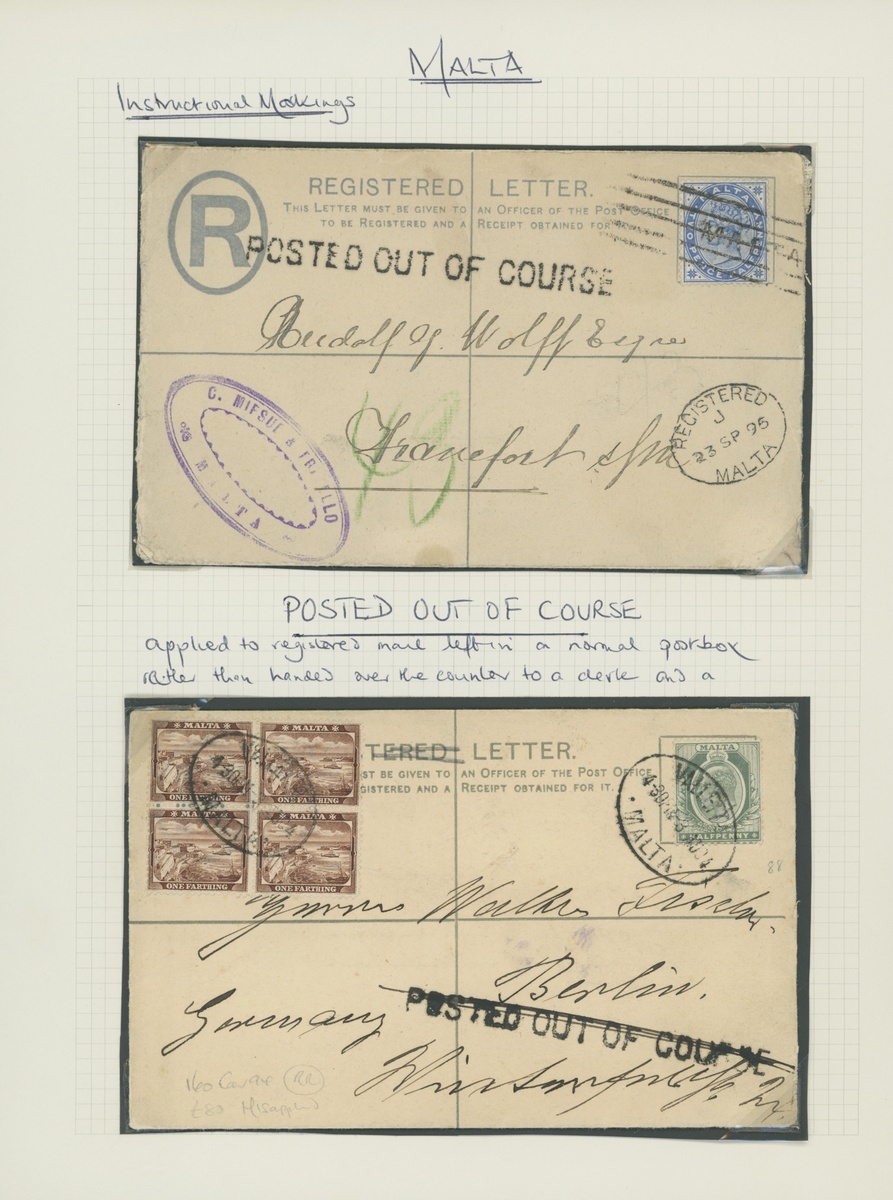 MALTA
Instructional Markings
REGISTERED LETTER.
THIS LETTER MUST BE GIVEN TO AN OFFICER OF THE POST OFFICE
TO BE REGISTERED AND A RECEIPT OBTAINED FOR
R
POSTED OUT OF COURSE
MALTA
Rudolf J. Wolff Esqre
Francfort s/M
REGISTERED
J
23 SP 95
MALTA
C. MIFSUD &
MALTA
POSTED OUT OF COURSE
applied to registered mail left in a normal postbox
rather than handed over the counter to a clerk and a
MALTA MALTA
ONE FARTHING ONE FARTHING
MALTA MALTA
ONE FARTHING ONE FARTHING
TERED LETTER.
ST BE GIVEN TO AN OFFICER OF THE POST OFFICE
GISTERED AND A RECEIPT OBTAINED FOR IT.
MALTA
HALFPENNY
VALLETTA
MALTA
88
Walther Fischer.
Berlin.
Germany
POSTED OUT OF COURSE
160 Cover RR
£80 Misapplied